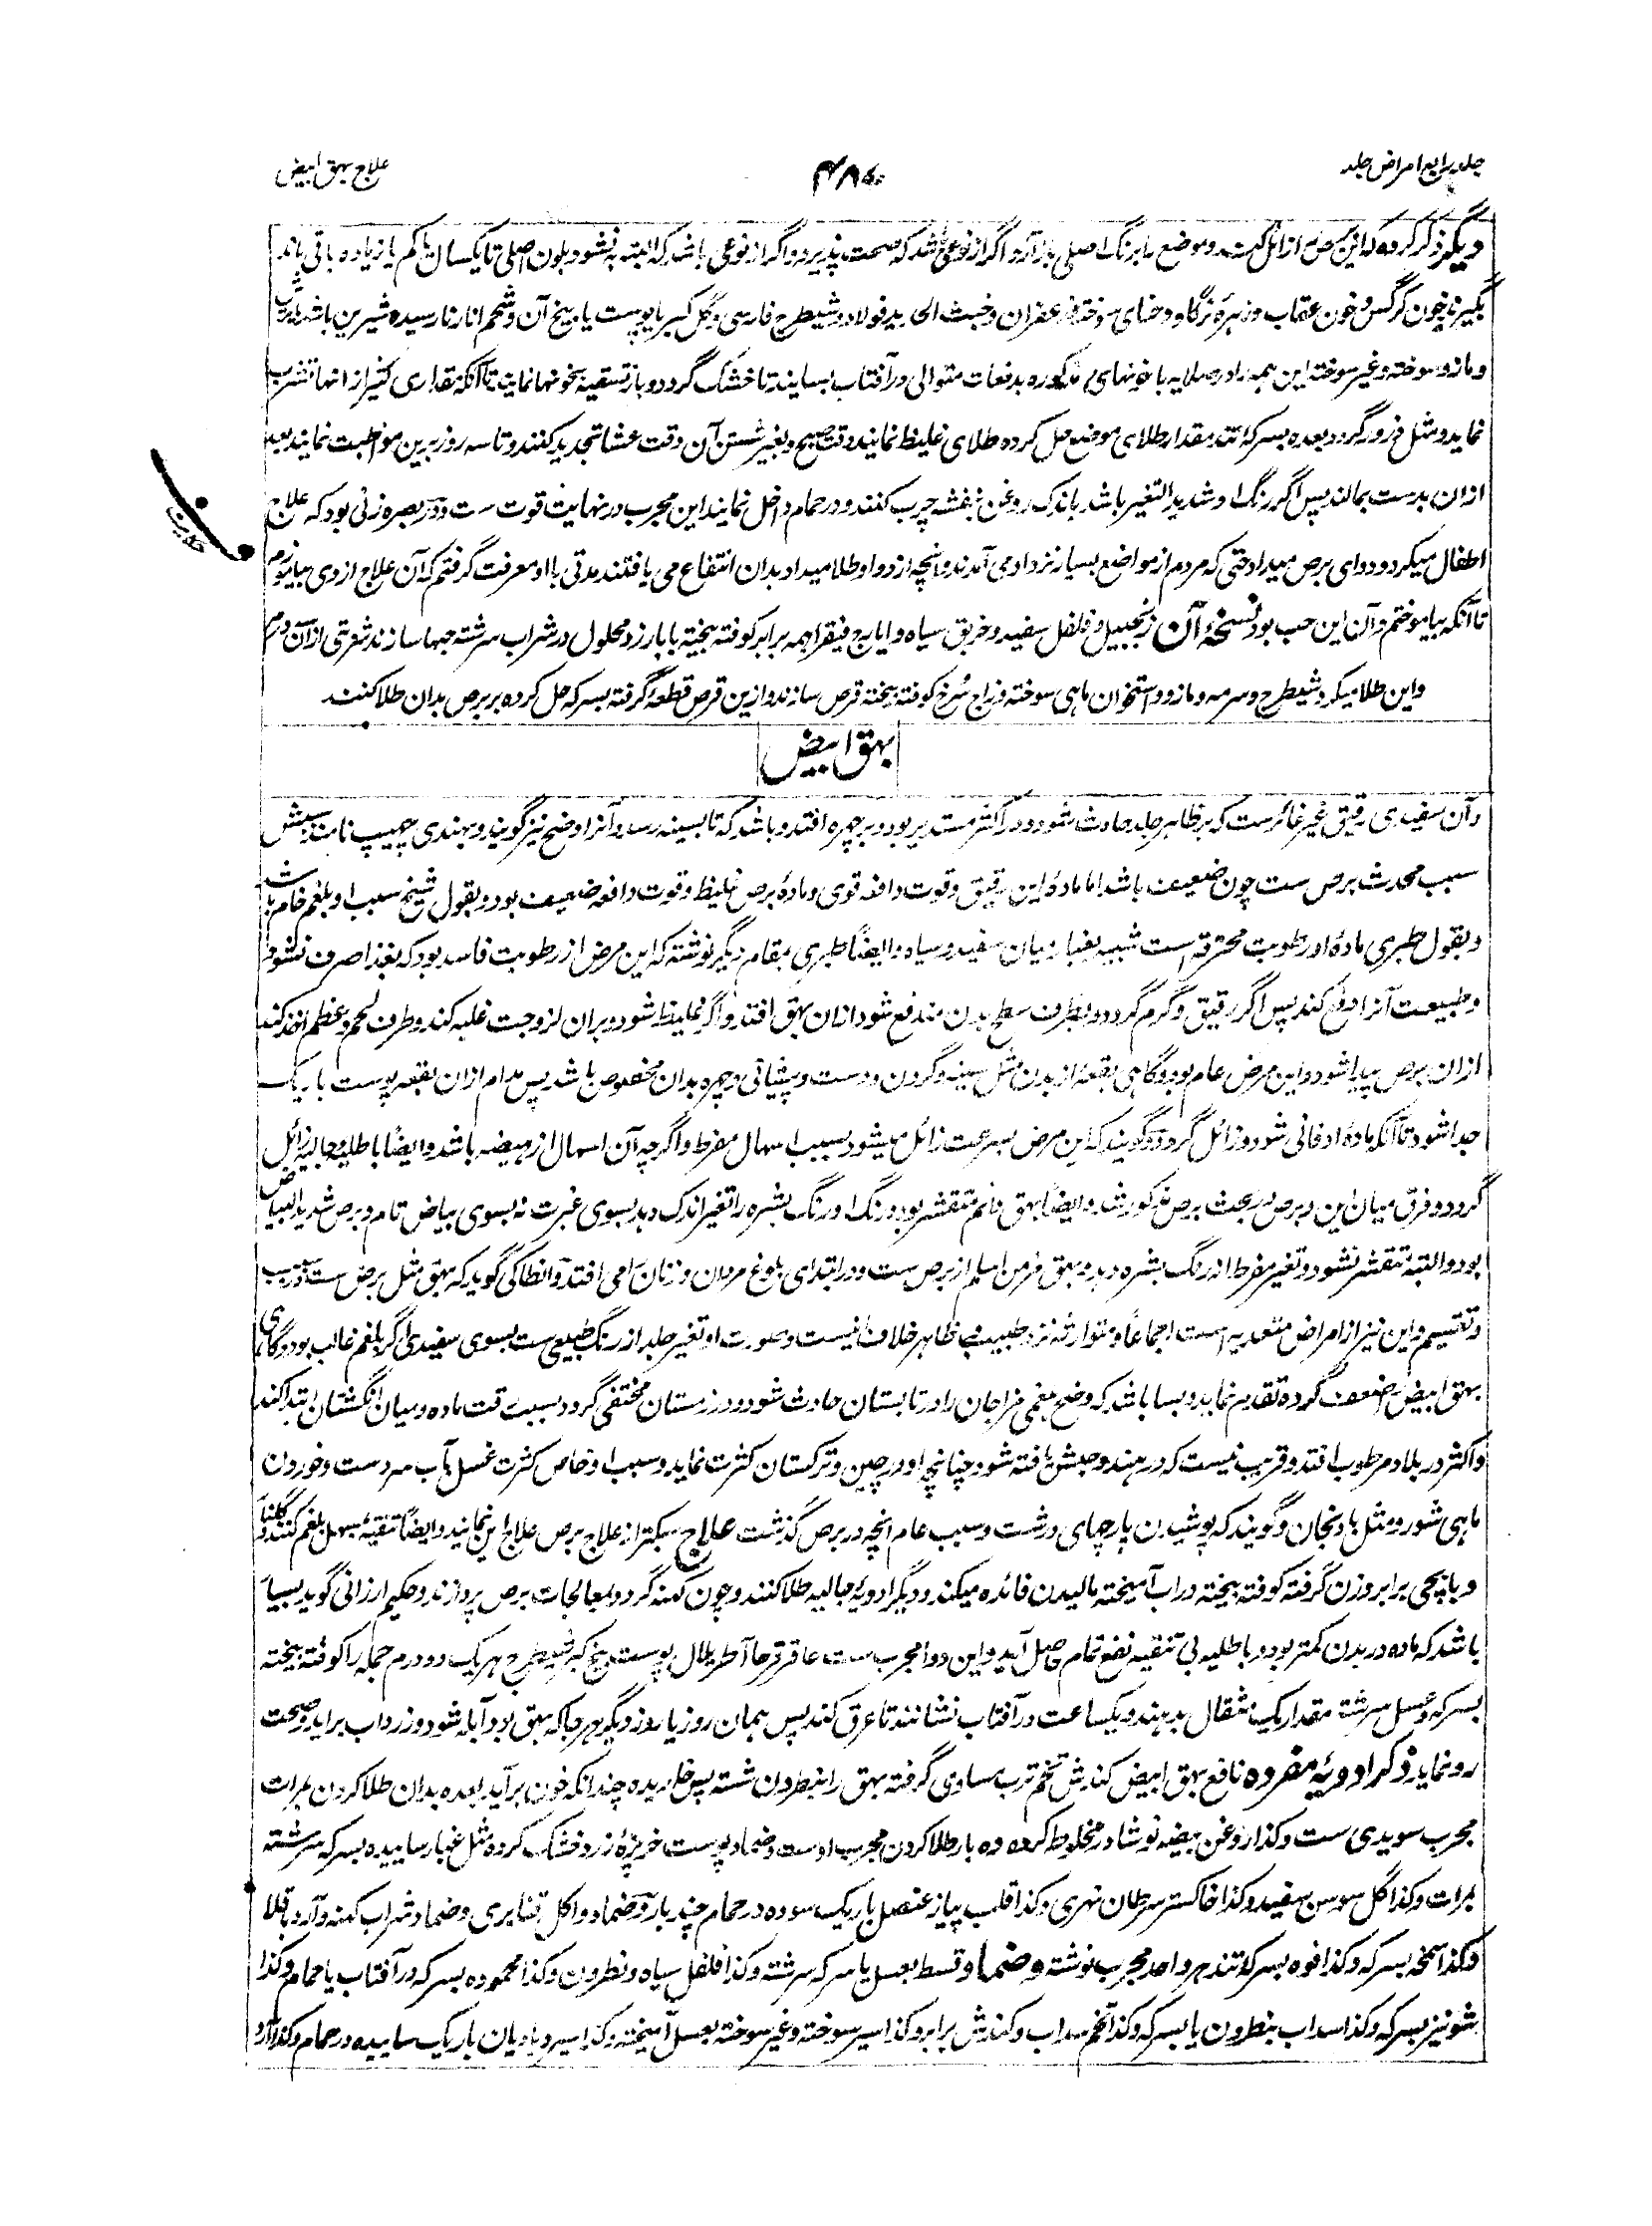 جلد رابع امراض جلد
علاج بهق ابیض
دیگر ذکر کرده که این برص زائل کند و موضع را برنگ اصلی باز آرد و اگر از نوعی باشد که صحت پذیرد و اگر از نوعی باشد که البته به نشود بلون اصلی تا یکسال یا کم یا زیاده باقی ماند
بگیرند خون کرگس و خون عقاب و زهرهٔ نرگاو و حنای سوخته و زعفران و خبث الحدید فولاد و شیطرج فارسی و گل کبر یا پوست یا بیخ آن و شحم انار نارسیده شیرین باشد یا ترش
و مازو سوخته و غیر سوخته این همه را در صلایه با خونهای مذکوره بدفعات متوالی در آفتاب بسایند تا خشک گردد و باز تسقیه بخونها نمایند تا آنکه مقداری کثیر از انها تشرب
نماید و مثل ذرور گردد بعده بسرکه تند مقدار طلای موضع حل کرده طلای غلیظ نمایند وقت صبح و بغیر شستن آن وقت عشا تجدید کنند و تا سه روز برین مواظبت نمایند بعد
ازان بدست بمالند پس اگر رنگ او شدید التغیر باشد باندک روغن بنفشه چرب کنند و در حمام داخل نمایند این مجرب در نهایت قوت ست و در بصره زنی بود که علاج
حکایت
اطفال میکرد و دوای برص میداد حتی که مردم از مواضع بسیار نزد او می آمدند و آنچه از دوا و طلا میداد بدان انتفاع می یافتند مدتی با او معرفت گرفتم که آن علاج از وی بیاموزم
تا آنکه بیاموختم و آن این حب بود نسخهٔ آن زنجبیل و فلفل سفید و خربق سیاه و ایارج فیقرا همه برابر کوفته بیخته با بارزد محلول در شراب سرشته حبها سازند شربتی ازان دو درم
و این طلا میکرد شیطرج و سرمه و مازو و استخوان ماهی سوخته و زاج سرخ کوفته بیخته قرص سازند و ازین قرص قطعهٔ گرفته بسرکه حل کرده بر برص بدان طلا کنند
بهق ابیض
و آن سفیدی رقیق غیر غائرست که بر ظاهر جلد حادث شود و در اکثر مستدیر بود و بر چهره افتد و باشد که تا بسینه رسد و آنرا وضح نیز گویند و بهندی چهیپ نامند سببش
سبب محدث برص ست چون ضعیف باشد اما مادهٔ این رقیق و قوت دافعه قوی و مادهٔ برص غلیظ و قوت دافعه ضعیف بود و بقول شیخ سبب او بلغم خام باشد
و بقول طبری مادهٔ او رطوبت محترقه است شبیه بغبار میان سفید و سیاه و ایضاً طبری بمقام دیگر نوشته که این مرض از رطوبت فاسد بود که بغذا صرف نشود
و طبیعت آنرا دفع کند پس اگر رقیق و گرم گردد و بطرف سطح بدن مندفع شود ازان بهق افتد و اگر غلیظ شود و بران لزوجت غلبه کند و طرف لحم و عظم اخذ کند
ازان برص پیدا شود و این مرض عام بود و گاهی بقعهٔ از بدن مثل سینه و گردن و دست و پیشانی و چهره بدان مخصوص باشد پس مدام ازان بقعه پوست باریک
جدا شود تا آنکه مادهٔ او فانی شود و زائل گردد و گویند که این مرض بسرعت زائل میشود بسبب اسهال مفرط و اگرچه آن اسهال از هیضه باشد و ایضاً باطلیهٔ جالیه زائل
گردد و فرق میان این و برص در بحث برص مذکور شد و ایضاً بهق دائم متقشر بود و رنگ او رنگ بشره را تغیر اندک دهد بسوی غبرت نه بسوی بیاض تام و برص شدید البیاض
بود و البته متقشر نشود و تغیر مفرط از رنگ بشره دهد و بهق مزمن اسلم از برص ست و در ابتدای بلوغ مردان و زنان را می افتد و انطاکی گوید که بهق مثل برص ست در سبب
و تقسیم و این نیز از امراض متعدیه است اجماعاً و متوارثه نزد طبیب و ظاهر خلاف نیست و صورت او تغیر جلد از رنگ طبیعی ست بسوی سفیدی اگر بلغم غالب بود و گاهی
بهق ابیض ضعف گرده تقدیم نماید و بسا باشد که وضح بلغمی مزاجان را در تابستان حادث شود و در زمستان مختفی گردد بسبب رقت ماده و میان انگشتان ابتدا کند
و اکثر در بلاد مرطوب افتد و قریب نیست که در هند و حبش یافته شود چنانچه او در چین و ترکستان کثرت نماید و سبب او خاص کثرت غسل بآب سرد ست و خوردن
ماهی شور و مثل بادنجان و گویند که پوشیدن پارچهای درشت و سبب عام آنچه در برص گذشت علاج سبکتر از علاج برص علاج این نمایند و ایضاً تنقیه بمسهل بلغم کنند و گلنار
و باپچی برابر وزن گرفته کوفته بیخته در آب آمیخته مالیدن فائده میکند و دیگر ادویهٔ جالیه طلا کنند و چون کهنه گردد بمعالجات برص پردازند و حکیم ارزانی گوید بسیار
باشد که ماده در بدن کمتر بود و باطلیه بی تنقیه نفع تمام حاصل آید و این دوا مجرب ست عاقرقرحا آطریلال پوست بیخ کبر شیطرج هر یک دو درم جمله را کوفته بیخته
بسرکه و عسل سرشته مقدار یک مثقال بدهند و یکساعت در آفتاب نشانند تا عرق کند پس همان روز یا روز دیگر هر جا که بهق بود آبله شود و زرداب براید و صحت
رو نماید ذکر ادویهٔ مفرده نافع بهق ابیض کندش تخم ترب مساوی گرفته بهق را بنطرون شسته پس خاریده چندانکه خون برآید بعده بدان طلا کردن بمرات
مجرب سویدی ست و کذا روغن بیضه نوشادر مخلوط کرده ده بار طلا کردن مجرب اوست و ضماد پوست خربزهٔ زرد خشک کرده مثل غبار ساییده بسرکه سرشته
بمرات و کذا گل سوسن سفید و کذا خاکستر سرطان نهری و کذا قلب پیاز عنصل باریک سوده در حمام چند بار و ضماد و اکل قنابری و ضماد شراب کهنه و آرد باقلا
و کذا سخه بسرکه و کذا فوه بسرکه تند هر واحد مجرب نوشته و ضماد قسط بعسل یا سرکه سرشته و کذا فلفل سیاه و نطرون و کذا محموده بسرکه در آفتاب یا حمام و کذا
شونیز بسرکه و کذا سداب بنطرون یا بسرکه و کذا تخم سداب و کندش برابر و کذا سیر سوخته و غیر سوخته بعسل آمیخته و کذا سیر و بادیان باریک ساییده در حمام و کذا آرد